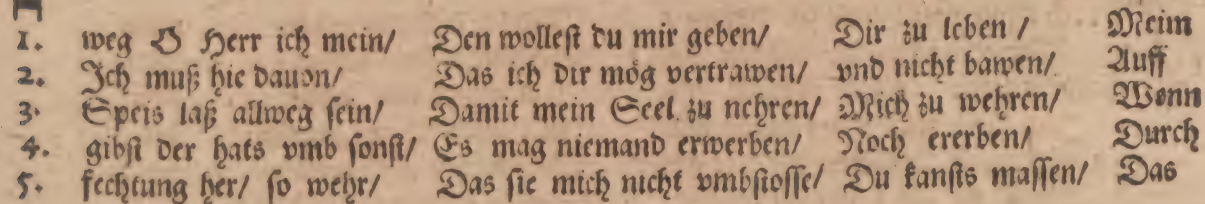 1. weg O Herr ich mein/ Den wollest du mir geben/ Dir zu leben / Meim
2. Ich muß hie dauon/ Das ich dir mög vertrawen/ vnd nicht bawen/ Auff
3. Speis laß allweg sein/ Damit mein Seel zu nehren/ Mich zu wehren/ Wenn
4. gibst der hats vmb sonst/ Es mag niemand erwerben/ Noch ererben/ Durch
5. fechtung her/ so wehr/ Das sie mich nicht vmbstosse/ Du kansts massen/ Das